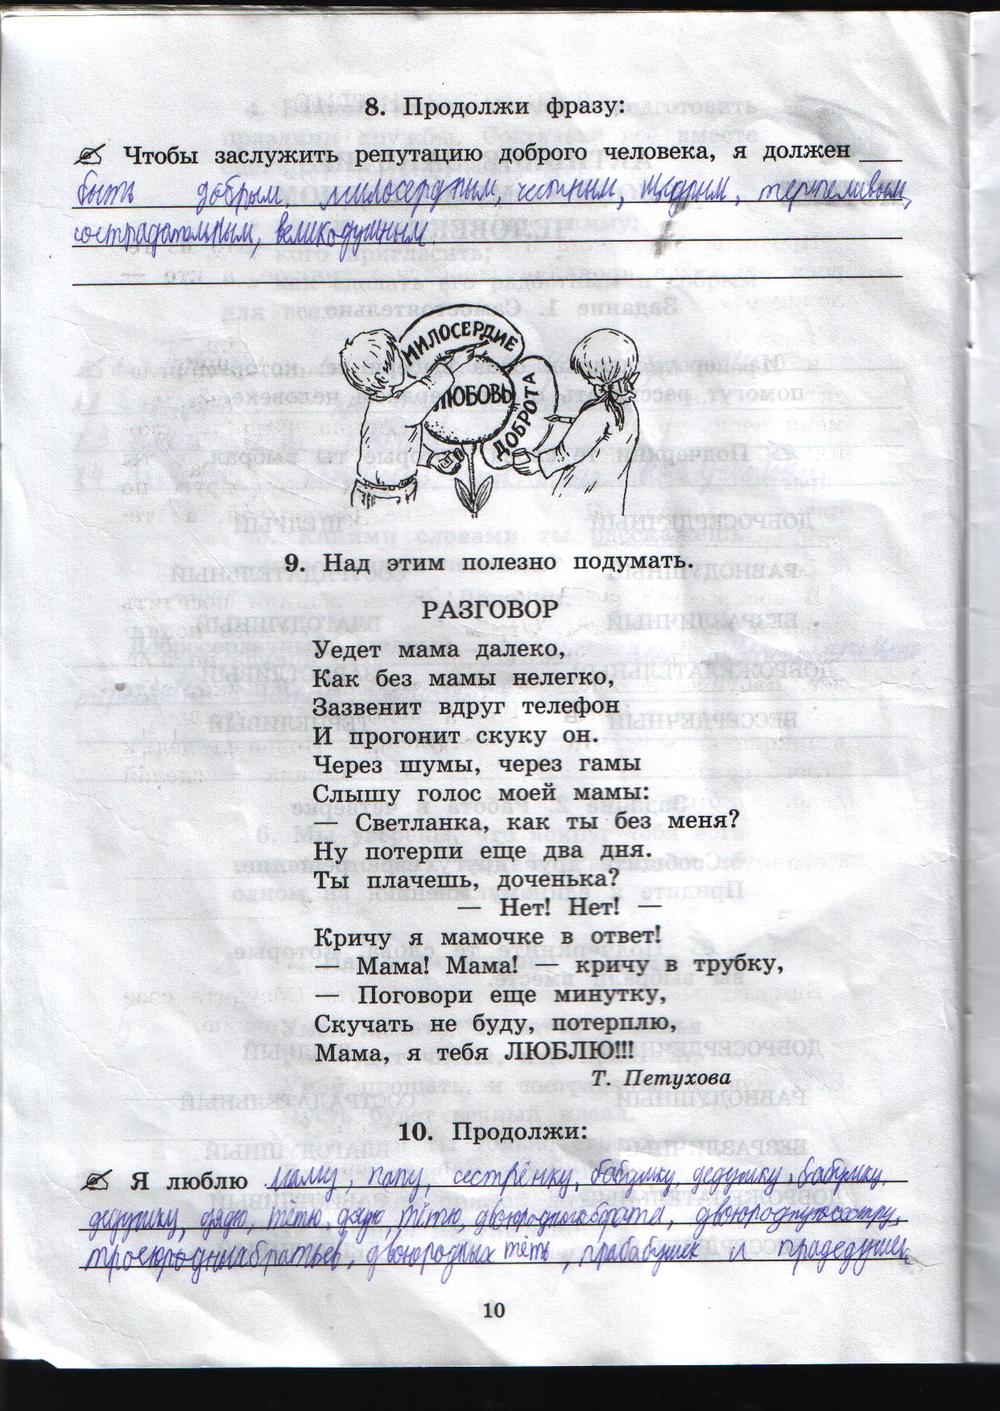 8. Продолжи фразу:
Чтобы заслужить репутацию доброго человека, я должен
быть добрым, милосердным, честным, щедрым, терпеливым,
сострадательным, великодушным
МИЛОСЕРДИЕ
ЛЮБОВЬ
ДОБРОТА
9. Над этим полезно подумать.
РАЗГОВОР
Уедет мама далеко,
Как без мамы нелегко,
Зазвенит вдруг телефон
И прогонит скуку он.
Через шумы, через гамы
Слышу голос моей мамы:
— Светланка, как ты без меня?
Ну потерпи еще два дня.
Ты плачешь, доченька?
— Нет! Нет! —
Кричу я мамочке в ответ!
— Мама! Мама! — кричу в трубку,
— Поговори еще минутку,
Скучать не буду, потерплю,
Мама, я тебя ЛЮБЛЮ!!!
Т. Петухова
10. Продолжи:
Я люблю маму, папу, сестрёнку, бабушку, дедушку, бабушку,
дедушку, дядю, тётю, дядю, тётю, двоюродного брата, двоюродную сестру,
троюродных братьев, двоюродных тёть, прабабушек и прадедушек
10